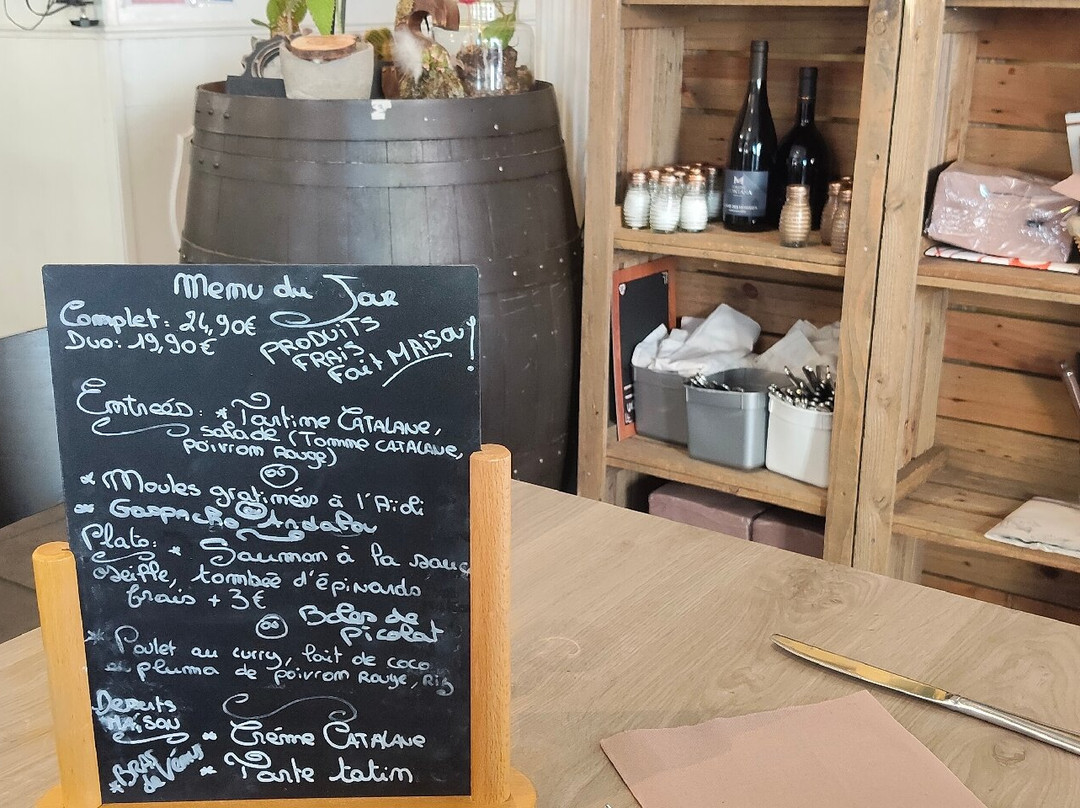 Menu du Jour
Complet: 24,90€
Duo: 19,90€
PRODUITS
FRAIS
fait MAISON!
Entrées: * Tartine CATALANE,
salade (Tomme CATALANE,
poivron Rouge)
ou
* Moules gratinées à l'Aïoli
* Gaspacho Andalou
Plats: * Saumon à la sauce
oseille, tombée d'épinards
frais + 3€
ou Boles de
picolat
* Poulet au curry, lait de coco
et pluma de poivron Rouge, Riz
Desserts
MAISON
* Crème CATALANE
BRAS
de Vénus
* Tarte tatin